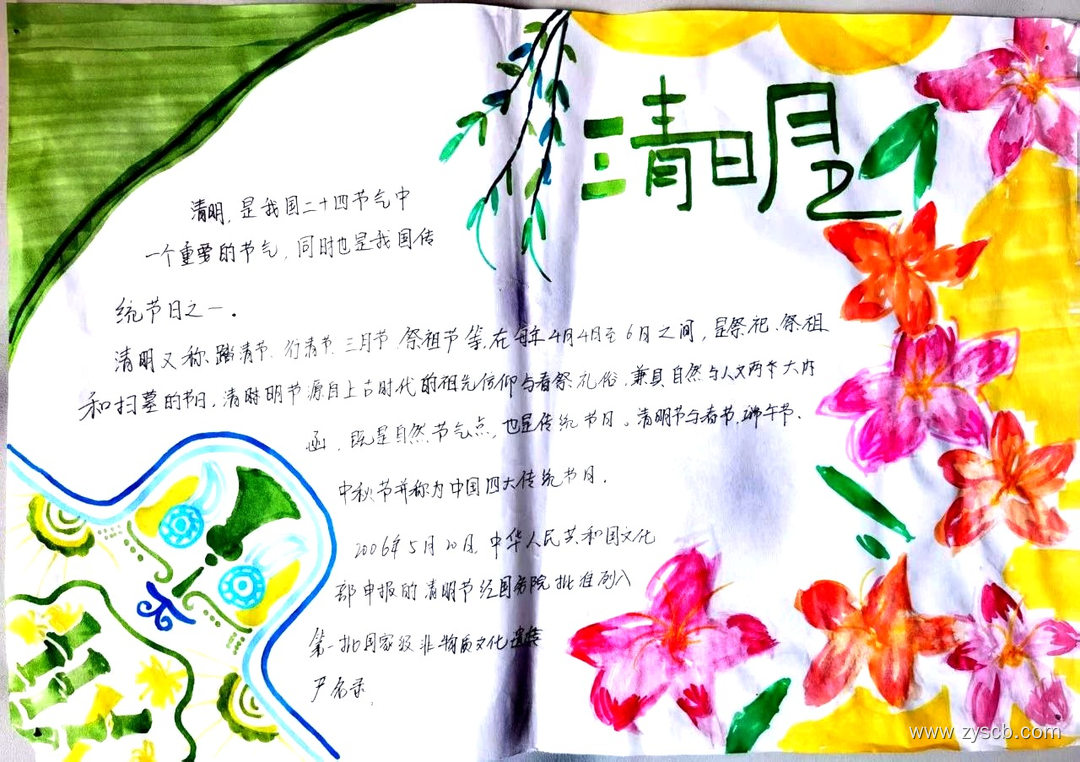 清明
清明，是我国二十四节气中
一个重要的节气，同时也是我国传
统节日之一。
清明又称踏清节、行清节、三月节、祭祖节等，在每年4月4日至6日之间，是祭祀、祭祖
和扫墓的节日，清时明节源自上古时代的祖先信仰与春祭礼俗，兼具自然与人文两个大内
涵，既是自然节气点，也是传统节日。清明节与春节、端午节、
中秋节并称为中国四大传统节日。
2006年5月20日，中华人民共和国文化
部申报的清明节经国务院批准列入
第一批国家级非物质文化遗
产名录。
www.zyscb.com